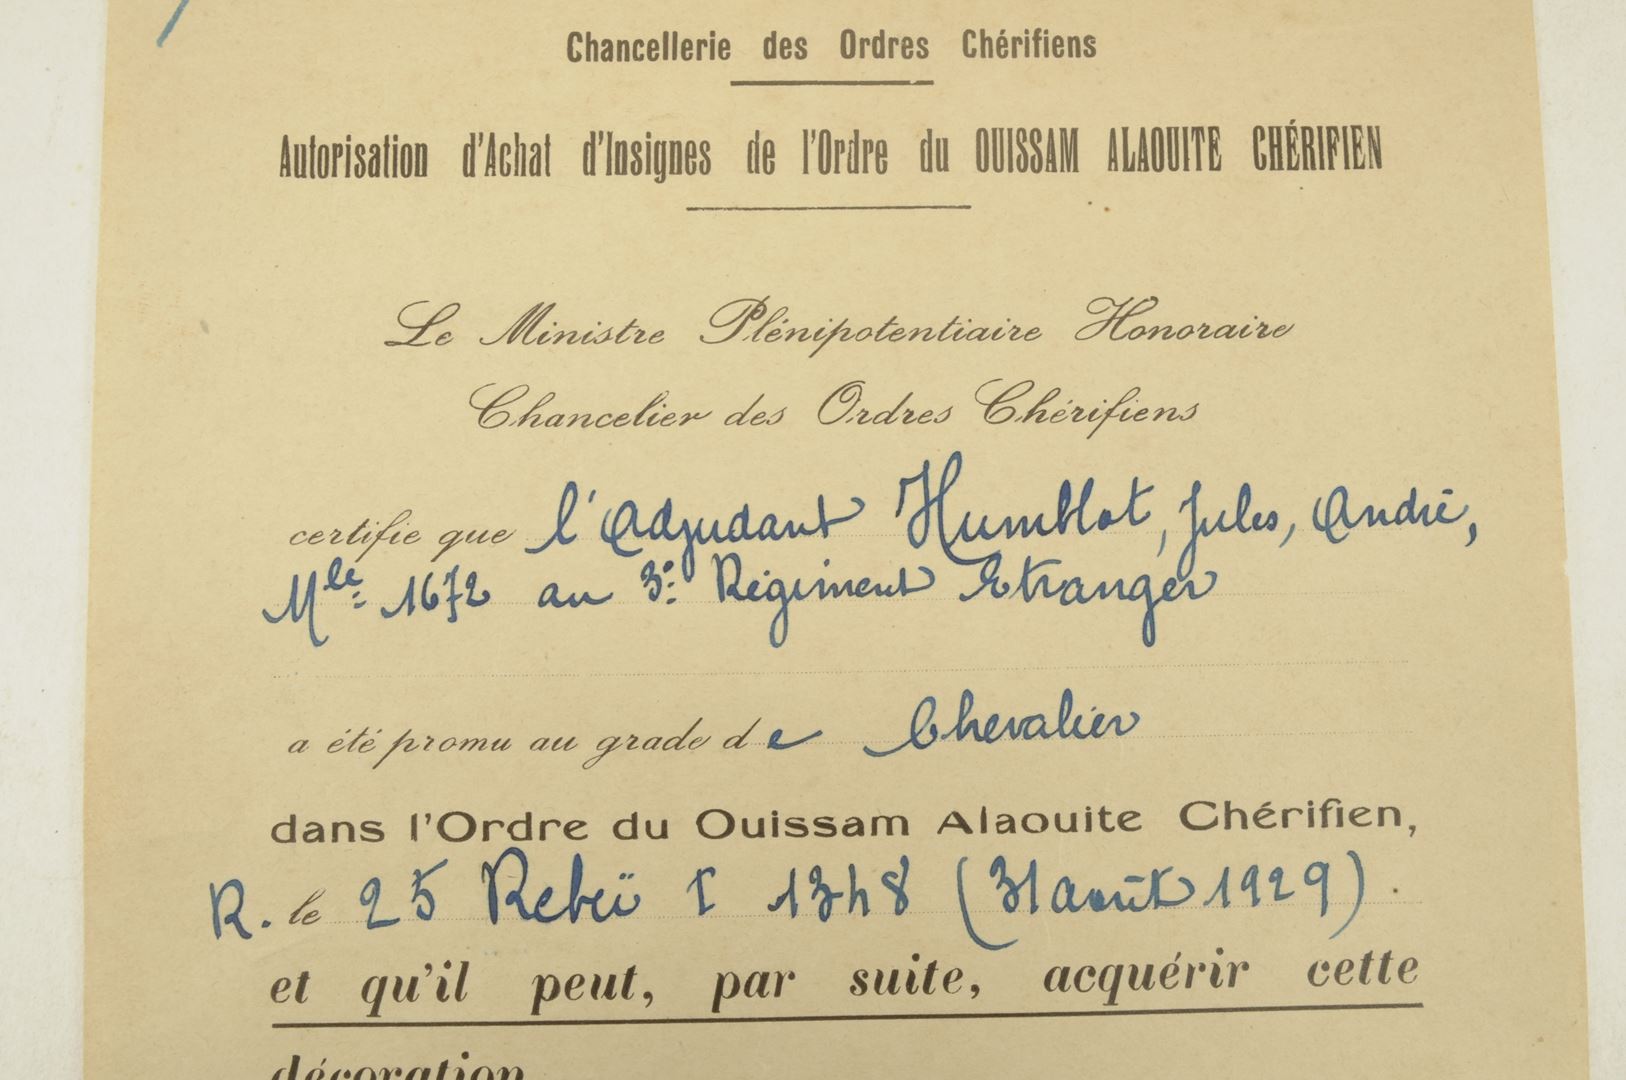 Chancellerie des Ordres Chérifiens
Autorisation d'Achat d'Insignes de l'Ordre du OUISSAM ALAOUITE CHÉRIFIEN
Le Ministre Plénipotentiaire Honoraire
Chancelier des Ordres Chérifiens
certifie que l'Adjudant Humblot, Jules, André,
Mle 1672 au 3e Régiment Etranger
a été promu au grade de Chevalier
dans l'Ordre du Ouissam Alaouite Chérifien,
R. le 25 Rebeï I 1348 (31 août 1929).
et qu'il peut, par suite, acquérir cette
décoration